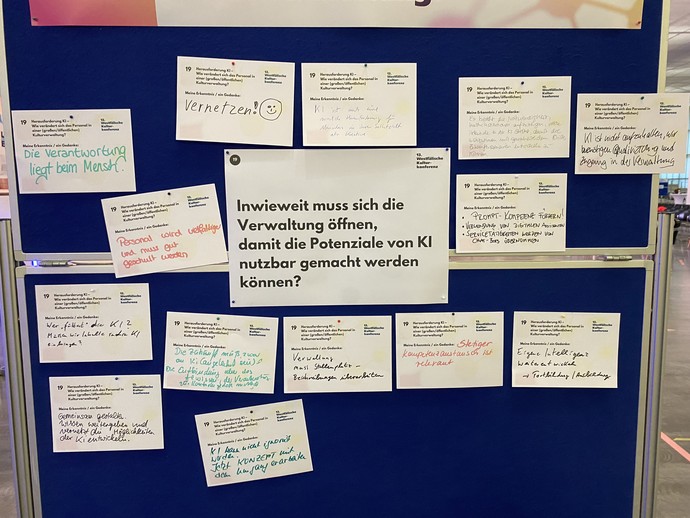 19
Herausforderung KI –
Wie verändert sich das Personal in
einer (großen/öffentlichen)
Kulturverwaltung?
12.
Westfälische
Kultur-
konferenz
Meine Erkenntnis / ein Gedanke:
Vernetzen!
19
Herausforderung KI –
Wie verändert sich das Personal in
einer (großen/öffentlichen)
Kulturverwaltung?
12.
Westfälische
Kultur-
konferenz
Meine Erkenntnis / ein Gedanke:
KI ist
19
Herausforderung KI –
Wie verändert sich das Personal in
einer (großen/öffentlichen)
Kulturverwaltung?
Meine Erkenntnis / ein Gedanke:
19
Herausforderung KI –
Wie verändert sich das Personal in
einer (großen/öffentlichen)
Kulturverwaltung?
Meine Erkenntnis / ein Gedanke:
KI ist nicht aufzuhalten, wir
benötigen Qualifizierung und
Zugang in der Verwaltung
19
Herausforderung KI –
Wie verändert sich das Personal in
einer (großen/öffentlichen)
Kulturverwaltung?
Meine Erkenntnis / ein Gedanke:
Die Verantwortung
liegt beim Mensch!
19
12.
Westfälische
Kultur-
konferenz
Inwieweit muss sich die
Verwaltung öffnen,
damit die Potenziale von KI
nutzbar gemacht werden
können?
19
Herausforderung KI –
Wie verändert sich das Personal in
einer (großen/öffentlichen)
Kulturverwaltung?
Meine Erkenntnis / ein Gedanke:
Personal wird vielfältiger
und muss gut
geschult werden
19
Herausforderung KI –
Wie verändert sich das Personal in
einer (großen/öffentlichen)
Kulturverwaltung?
Meine Erkenntnis / ein Gedanke:
• PROMPT-KOMPETENZ FÖRDERN
• VERWENDUNG VON DIGITALEN ASSISTENTEN
• SERVICETÄTIGKEITEN WERDEN VON
CHAT-BOTS ÜBERNOMMEN
19
Herausforderung KI –
Wie verändert sich das Personal in
einer (großen/öffentlichen)
Kulturverwaltung?
Meine Erkenntnis / ein Gedanke:
Wer „füttert" die KI?
KI
19
Herausforderung KI –
Wie verändert sich das Personal in
einer (großen/öffentlichen)
Kulturverwaltung?
Meine Erkenntnis / ein Gedanke:
Die Zukunft muss
19
Herausforderung KI –
Wie verändert sich das Personal in
einer (großen/öffentlichen)
Kulturverwaltung?
Meine Erkenntnis / ein Gedanke:
Verwaltung
muss Stellenplatz-
Beschreibungen überarbeiten
19
Herausforderung KI –
Wie verändert sich das Personal in
einer (großen/öffentlichen)
Kulturverwaltung?
Meine Erkenntnis / ein Gedanke:
Stetiger
Kompetenzaustausch ist
relevant
19
Herausforderung KI –
Wie verändert sich das Personal in
einer (großen/öffentlichen)
Kulturverwaltung?
Meine Erkenntnis / ein Gedanke:
Eigene Intelligenz
weiterentwickeln
→ Fortbildung / Ausbildung
19
Herausforderung KI –
Wie verändert sich das Personal in
einer (großen/öffentlichen)
Kulturverwaltung?
Meine Erkenntnis / ein Gedanke:
Gemeinsam gestalten
Wissen weitergeben und
vernetzt die Möglichkeiten
der KI entwickeln.
19
Herausforderung KI –
Wie verändert sich das Personal in
einer (großen/öffentlichen)
Kulturverwaltung?
Meine Erkenntnis / ein Gedanke:
KI kann nicht ignoriert
werden.
Jetzt KONZEPT mit
dem Umgang erarbeiten